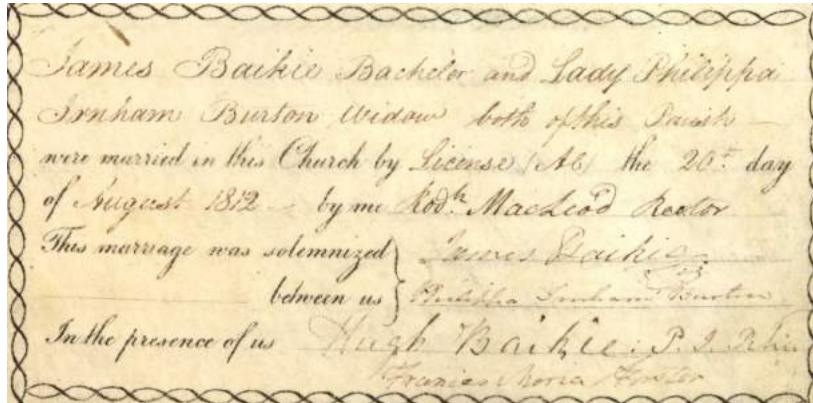 James Baikie Bachelor and Lady Philippa
Irnham Burton Widow both of this Parish —
were married in this Church by License (AC) the 20th. day
of August 1812 — by me Rodk. MacLeod Rector
This marriage was solemnized } James Baikie
between us } Philippa Irnham Burton
In the presence of us Hugh Baikie : P. I.
Frances Maria Forster